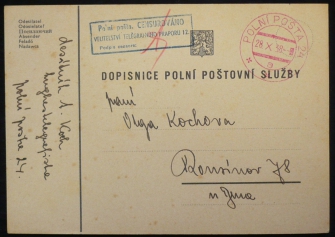 Odesílatel
Odosielateľ
Absender
Feladó
Polní pošta. CENSUROVÁNO
VELITELSTVÍ TELEGRAFNÍHO PRAPORU 12
POLNÍ POŠTA
28.X.38
DOPISNICE POLNÍ POŠTOVNÍ SLUŽBY
paní
Olga Kochova
Rousínov 78
u Brna
desátník A. Koch
polní pošta 24.